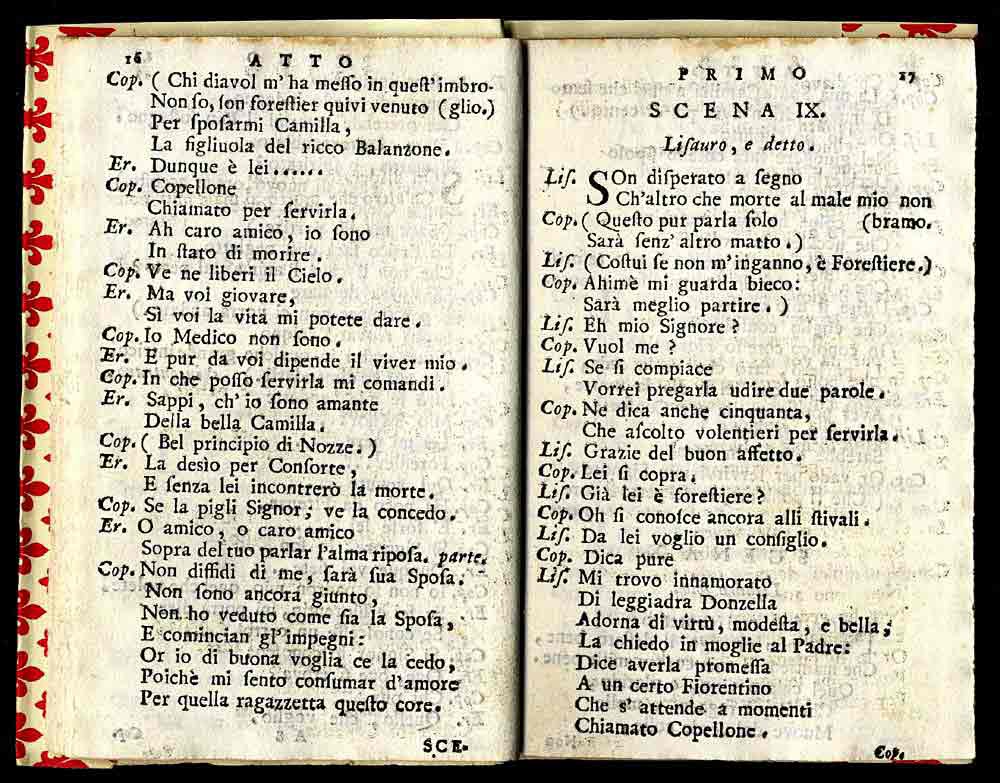 16 ATTO
Cop. ( Chi diavol m' ha meſſo in queſt' imbro-
Non ſo, ſon foreſtier quivi venuto (glio.)
Per ſpoſarmi Camilla,
La figliuola del ricco Balanzone.
Er. Dunque è lei......
Cop. Copellone
Chiamato per ſervirla.
Er. Ah caro amico, io ſono
In ſtato di morire.
Cop. Ve ne liberi il Cielo.
Er. Ma voi giovare,
Sì voi la vita mi potete dare.
Cop. Io Medico non ſono.
Er. E pur da voi dipende il viver mio.
Cop. In che poſſo ſervirla mi comandi.
Er. Sappi, ch' io ſono amante
Della bella Camilla.
Cop. ( Bel principio di Nozze. )
Er. La desìo per Conſorte,
E ſenza lei incontrerò la morte.
Cop. Se la pigli Signor; ve la concedo.
Er. O amico, o caro amico
Sopra del tuo parlar l'alma ripoſa. parte.
Cop. Non diffidi di me, ſarà ſua Spoſa.
Non ſono ancora giunto,
Non ho veduto come ſia la Spoſa,
E comincian gl' impegni:
Or io di buona voglia ce la cedo,
Poichè mi ſento conſumar d'amore
Per quella ragazzetta queſto core.
SCE-
PRIMO 17
SCENA IX.
Liſauro, e detto.
Liſ. SOn diſperato a ſegno
Ch'altro che morte al male mio non
Cop. ( Queſto pur parla ſolo (bramo.
Sarà ſenz' altro matto. )
Liſ. ( Coſtui ſe non m'inganno, è Foreſtiere. )
Cop. Ahimè mi guarda bieco:
Sarà meglio partire. )
Liſ. Eh mio Signore ?
Cop. Vuol me ?
Liſ. Se ſi compiace
Vorrei pregarla udire due parole.
Cop. Ne dica anche cinquanta,
Che aſcolto volentieri per ſervirla.
Liſ. Grazie del buon affetto.
Cop. Lei ſi copra.
Liſ. Già lei è foreſtiere ?
Cop. Oh ſi conoſce ancora alli ſtivali.
Liſ. Da lei voglio un conſiglio.
Cop. Dica pure
Liſ. Mi trovo innamorato
Di leggiadra Donzella
Adorna di virtù, modeſta, e bella;
La chiedo in moglie al Padre:
Dice averla promeſſa
A un certo Fiorentino
Che s' attende a momenti
Chiamato Copellone.
Cop.